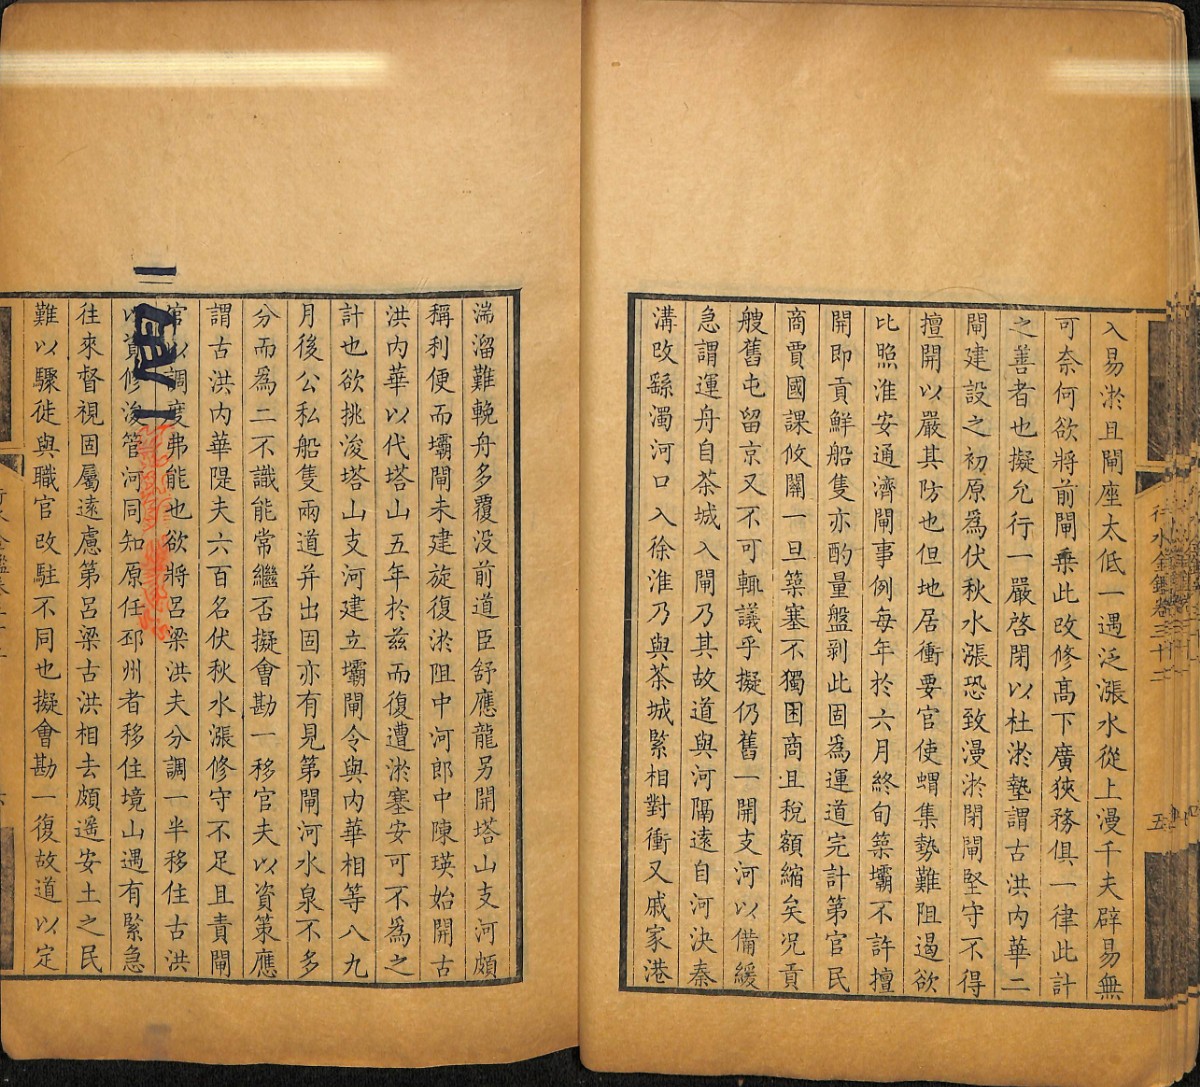 入易淤且閘座太低一遇泛漲水從上漫千夫辟易無
可奈何欲將前閘乗此改修髙下廣狹務俱一律此計
之善者也擬允行一嚴啓閉以杜淤墊謂古洪内華二
閘建設之初原爲伏秋水漲恐致漫淤閉閘堅守不得
擅開以嚴其防也但地居衝要官使蝟集勢難阻遏欲
比照淮安通濟閘事例每年於六月終旬築壩不許擅
開即貢鮮船隻亦酌量盤剥此固爲運道完計第官民
商賈國課攸關一旦築塞不獨困商且税額縮矣况貢
艘舊屯留京又不可輒議乎擬仍舊一開支河以備緩
急謂運舟自茶城入閘乃其故道與河隔遠自河決秦
溝改繇濁河口入徐淮乃與茶城緊相對衝又戚家港
行水金鑑卷三十二
五
湍溜難輓舟多覆没前道臣舒應龍另開塔山支河頗
稱利便而壩閘未建旋復淤阻中河郎中陳瑛始開古
洪内華以代塔山五年於兹而復遭淤塞安可不爲之
計也欲挑浚塔山支河建立壩閘令與内華相等八九
月後公私船隻兩道并出固亦有見第閘河水泉不多
分而爲二不識能常繼否擬會勘一移官夫以資策應
謂古洪内華隄夫六百名伏秋水漲修守不足且責閘
官以調度弗能也欲將呂梁洪夫分調一半移住古洪
以資修浚管河同知原任邳州者移住境山遇有緊急
往來督視固屬遠慮第呂梁古洪相去頗遥安土之民
難以驟徙與職官改駐不同也擬會勘一復故道以定